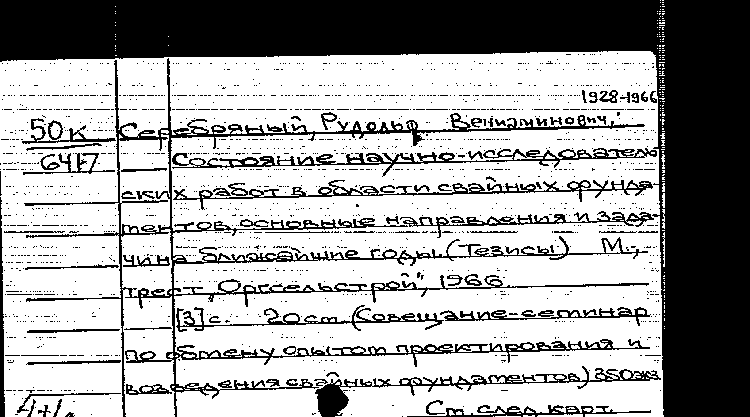 1928-1966
50к Серебряный, Рудольф Вениаминович.
6417 Состояние научно-исследователь
ских работ в области свайных фунда-
ментов, основные направления и зада-
чи на ближайшие годы. (Тезисы) М.,
трест "Оргсельстрой", 1966.
[3] с. 20 см (Совещание-семинар
по обмену опытом проектирования и
возведения свайных фундаментов) 350 экз
См. след. карт.